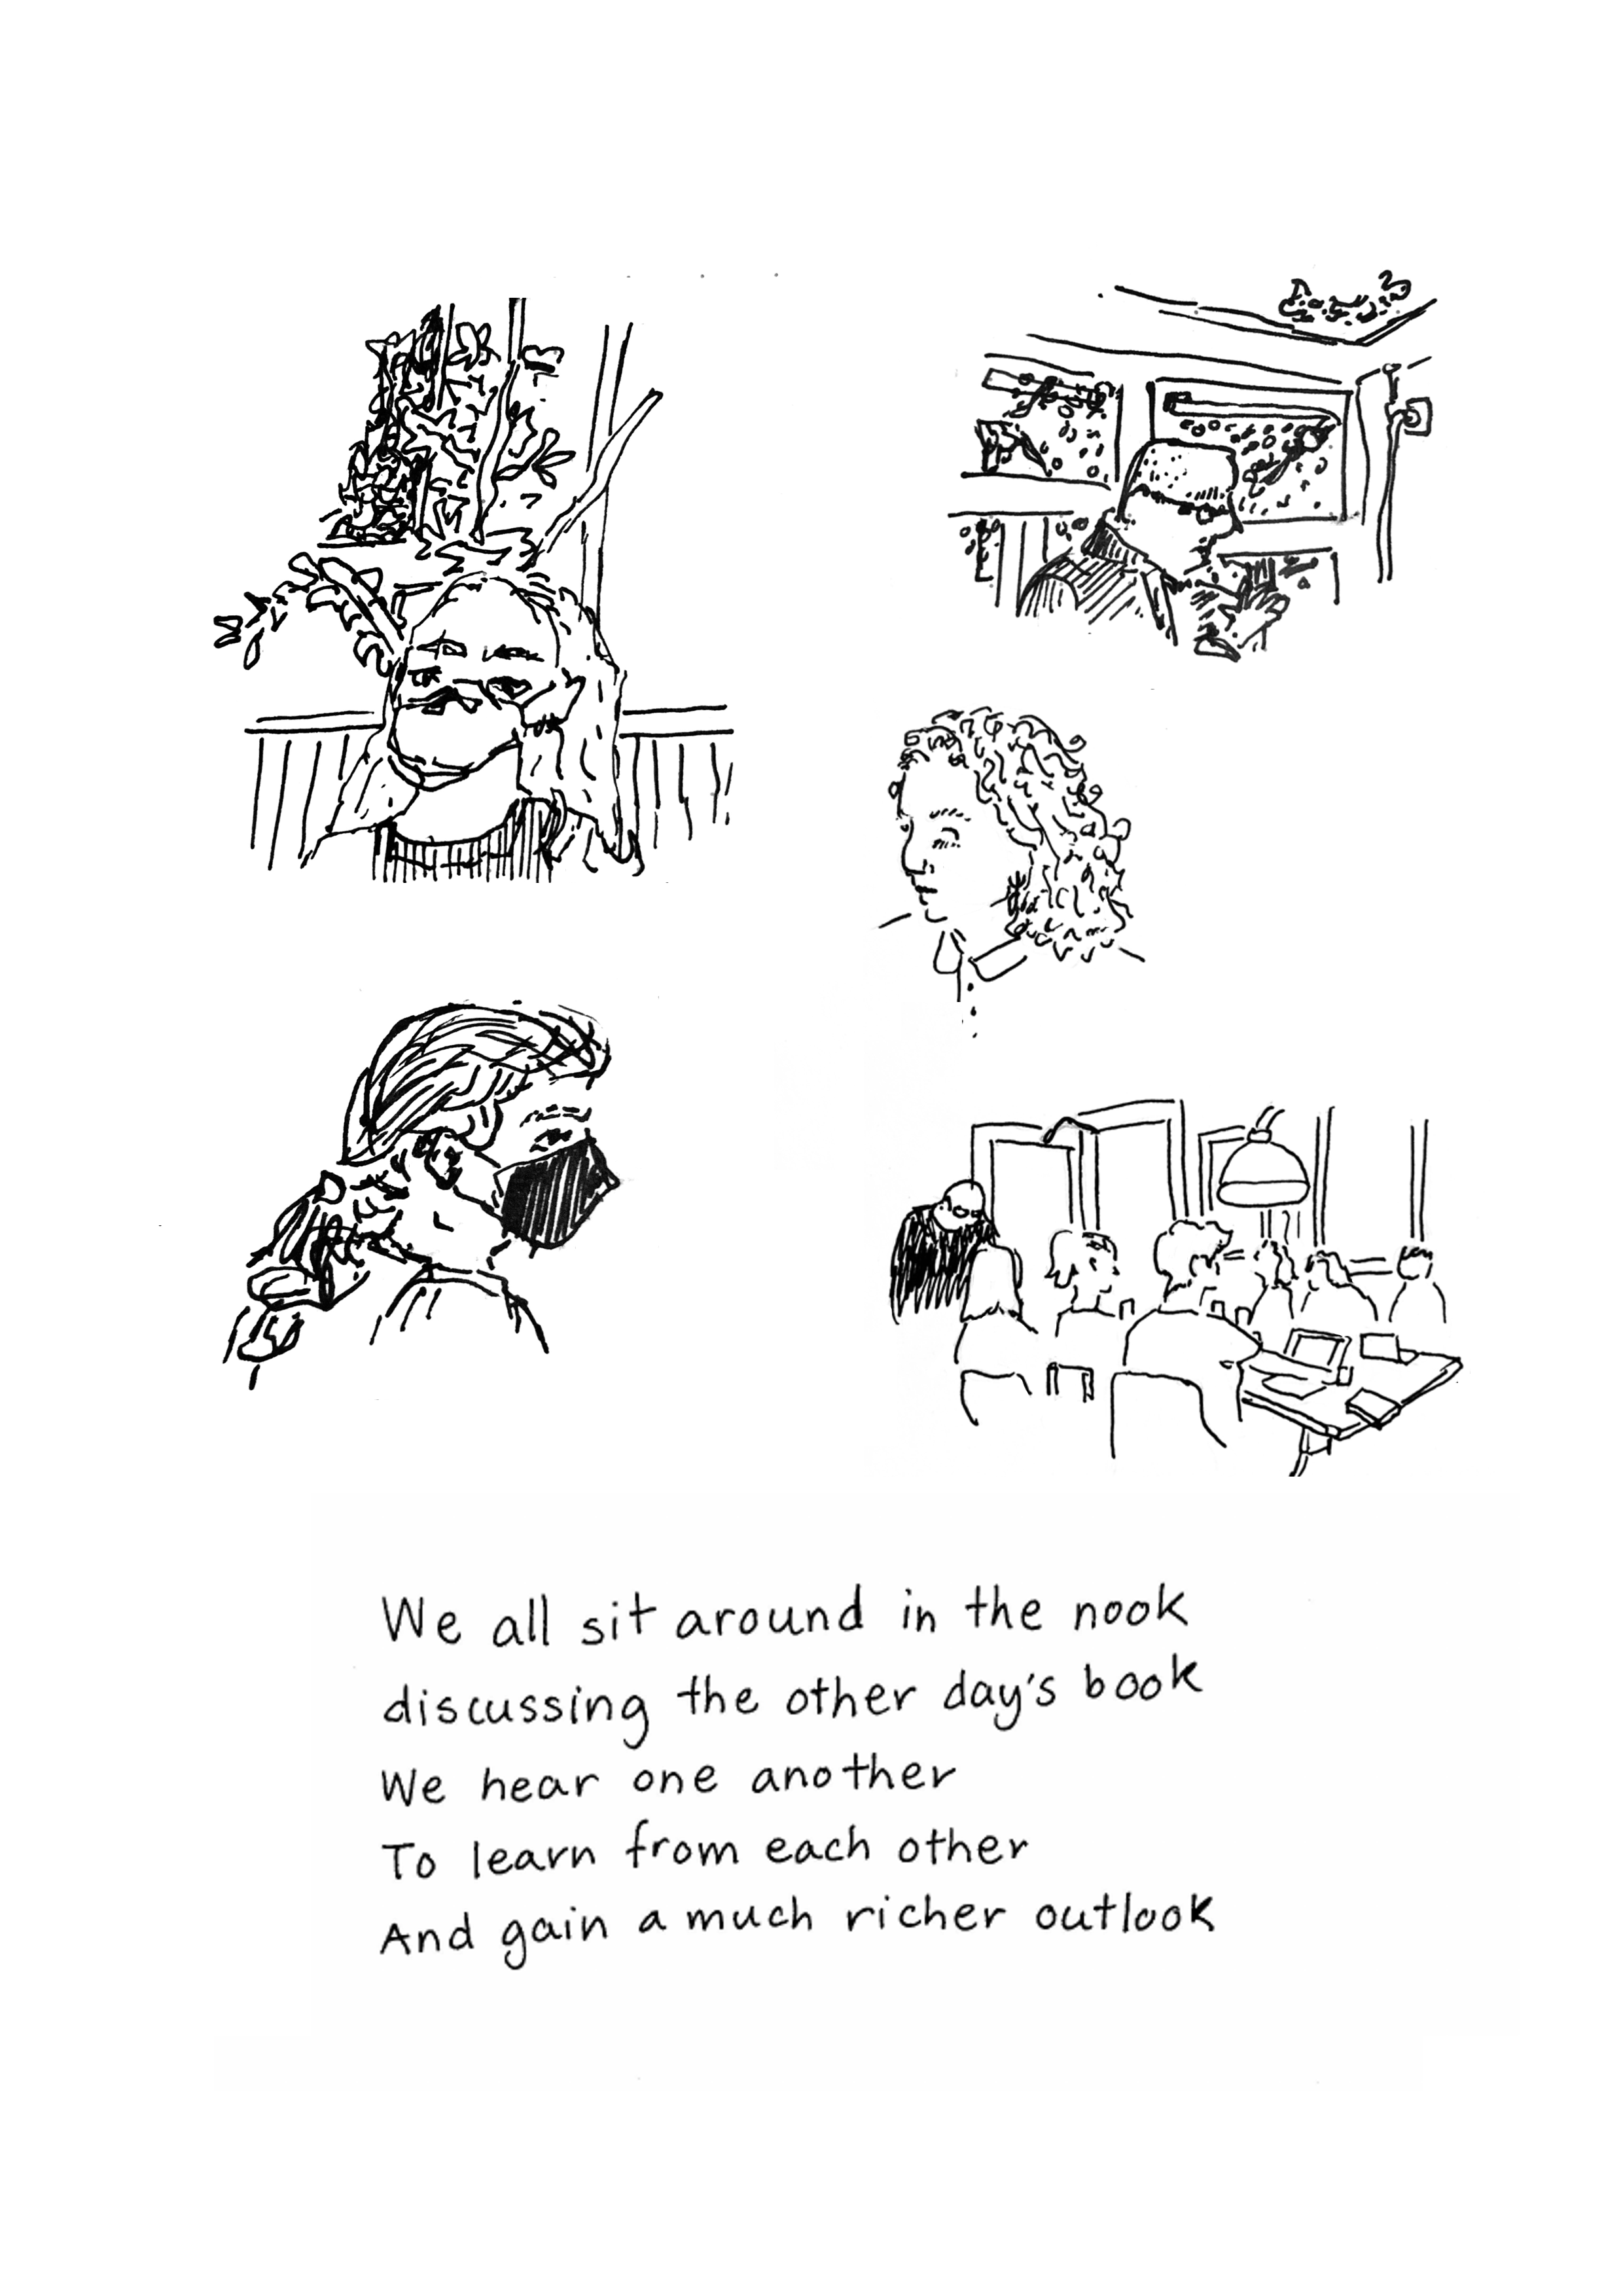 We all sit around in the nook
discussing the other day's book
We hear one another
To learn from each other
And gain a much richer outlook